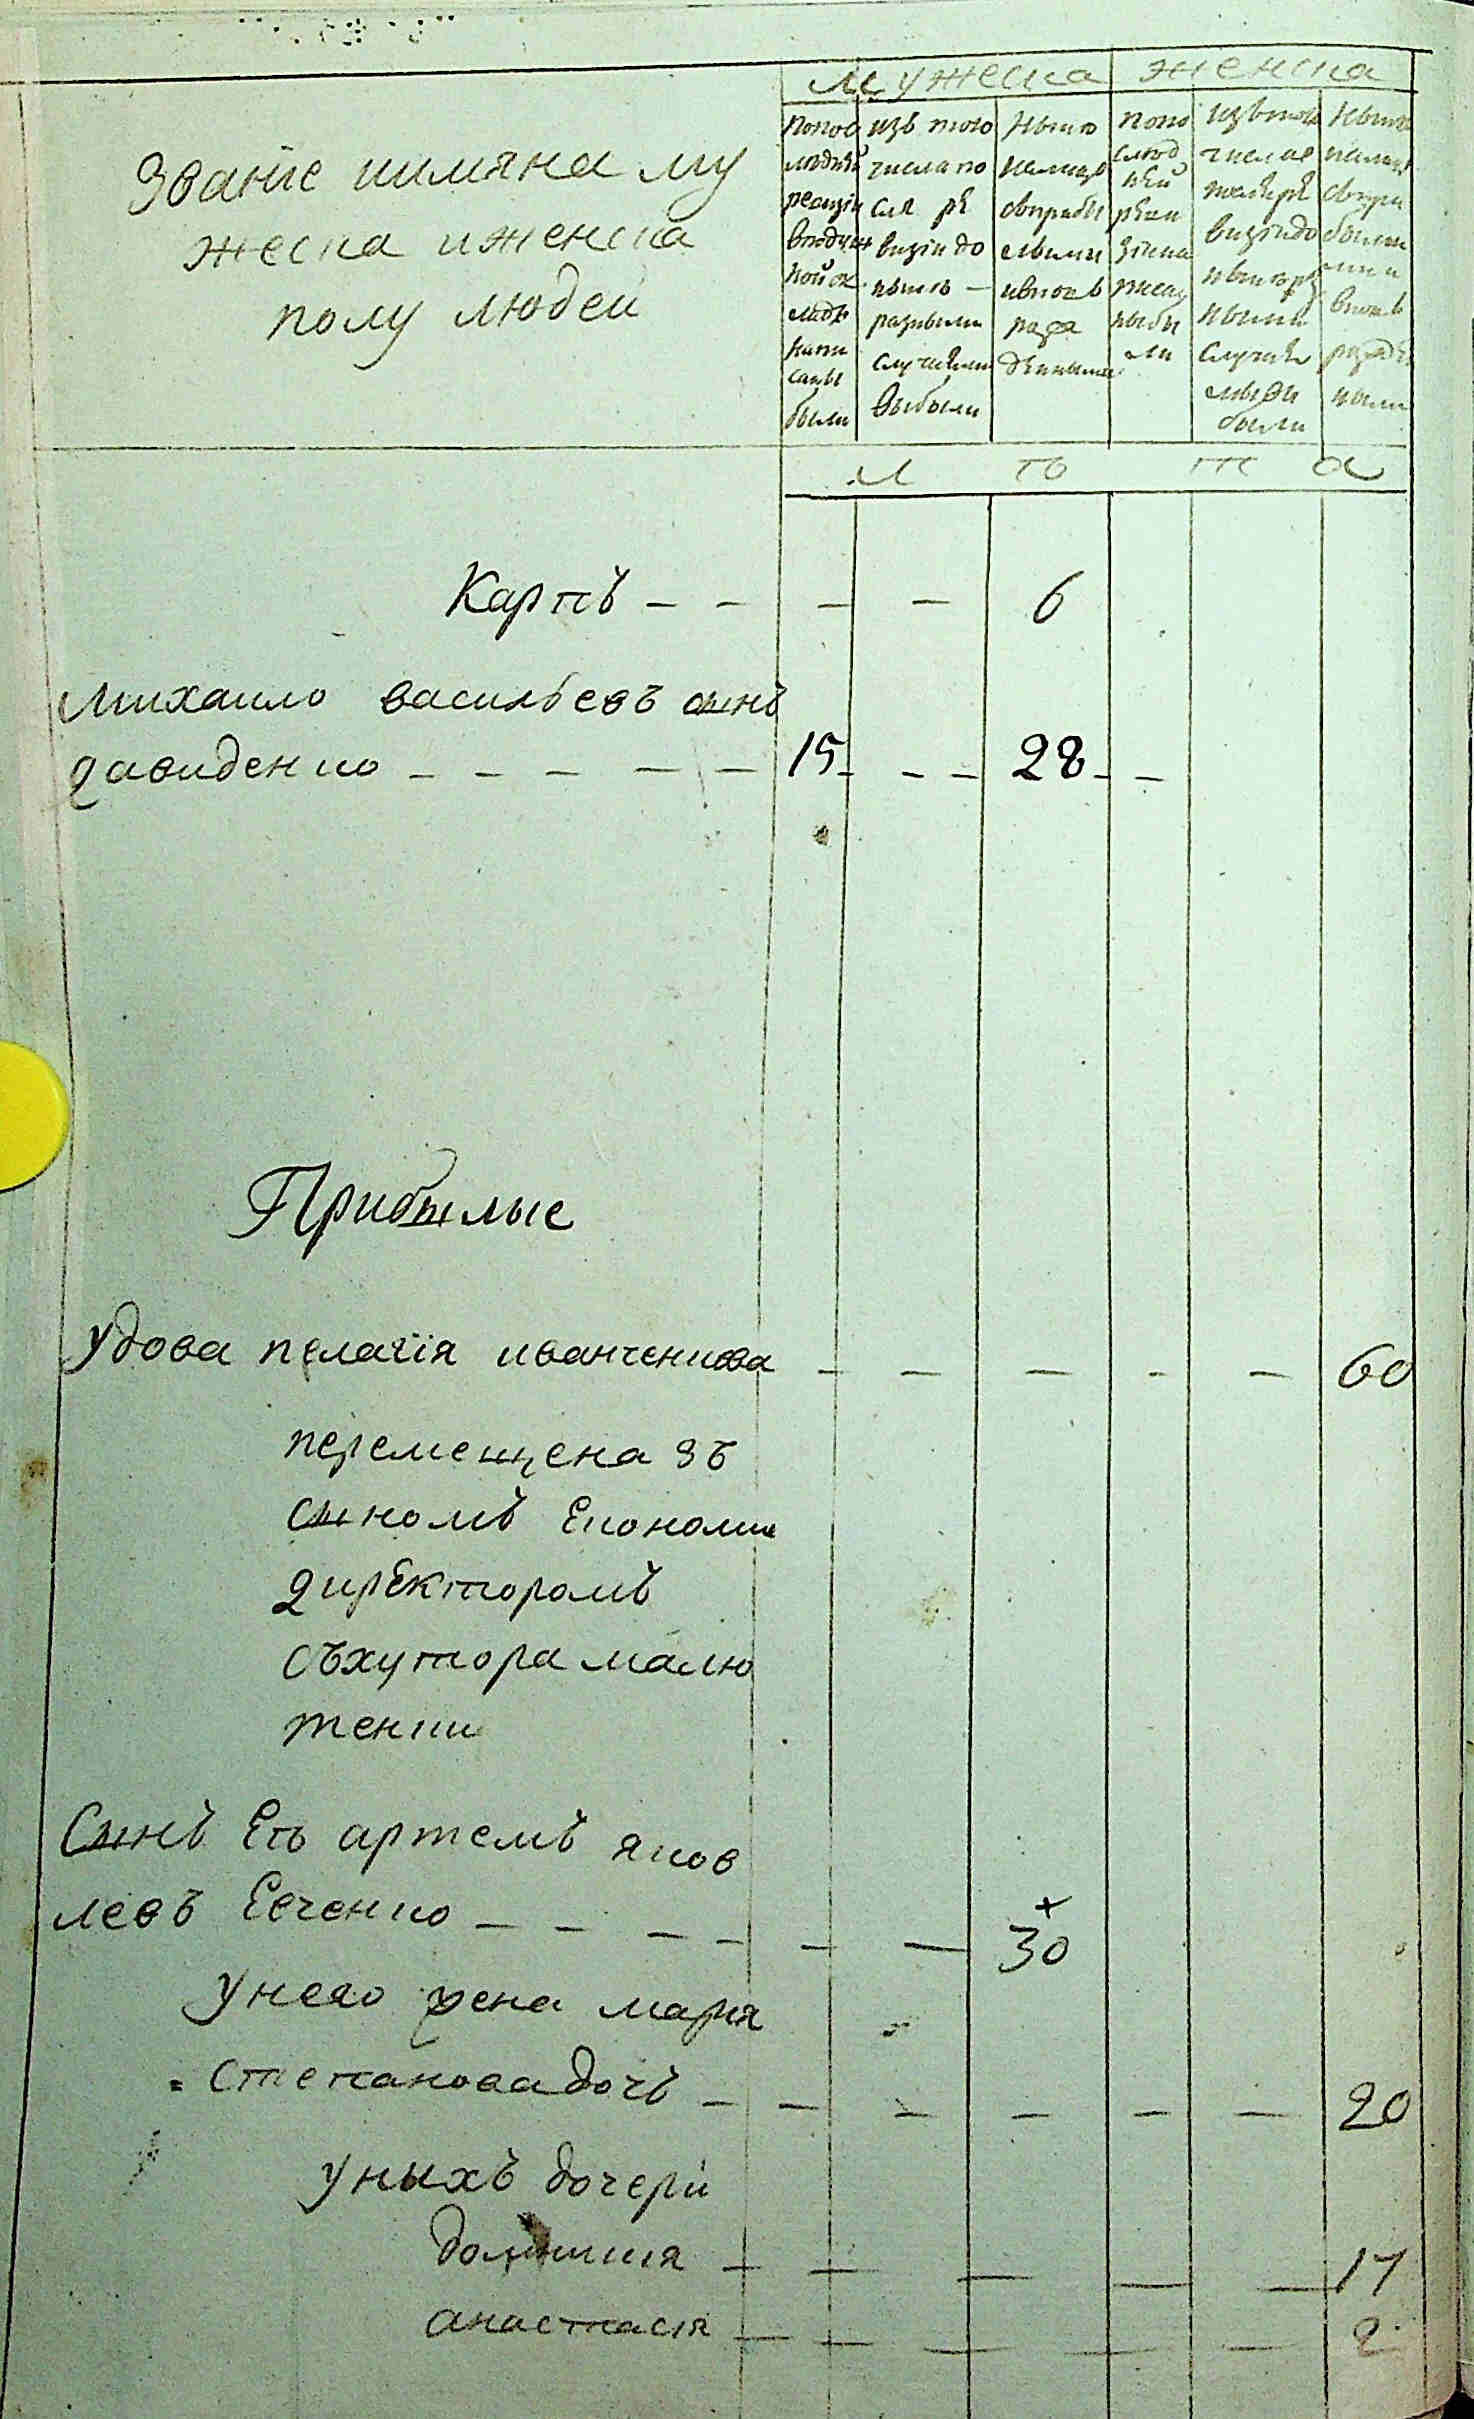 мужеска женска
Званіе иимяна му
жеска иженска
полу людей
попос
ледней
ревизіи
были
изъ того
числа по
сле ре
визіи до
ныне
разными
случаями
выбыли
ныне
налицо
сприбы
лыми
ивновь
рожденными
попо
след
ней
реви
были
изътого
числа
после ре
визіи до
ныне раз
ными
случая
ми вы
были
ныне
налицо
сопри
былы
ми и
вновь
рожде
ными
л ѣ т а
Карпъ - - - - 6
Михаило васильевъ сынъ
давиденко - - - - - 15 - - - 28 - -
Прибылые
Удова пелагія иванченкова - - - - - 60
перемещена зъ
сыномъ Економіи
директоромъ
съхутора малю
тенки
Сынъ Ея артемъ яков
левъ Евченко - - - - - - 30
унего жена марія
степанова дочь - - - - - - 20
уныхъ дочери
домникія - - - - - 17
анастасія - - - - - - 2